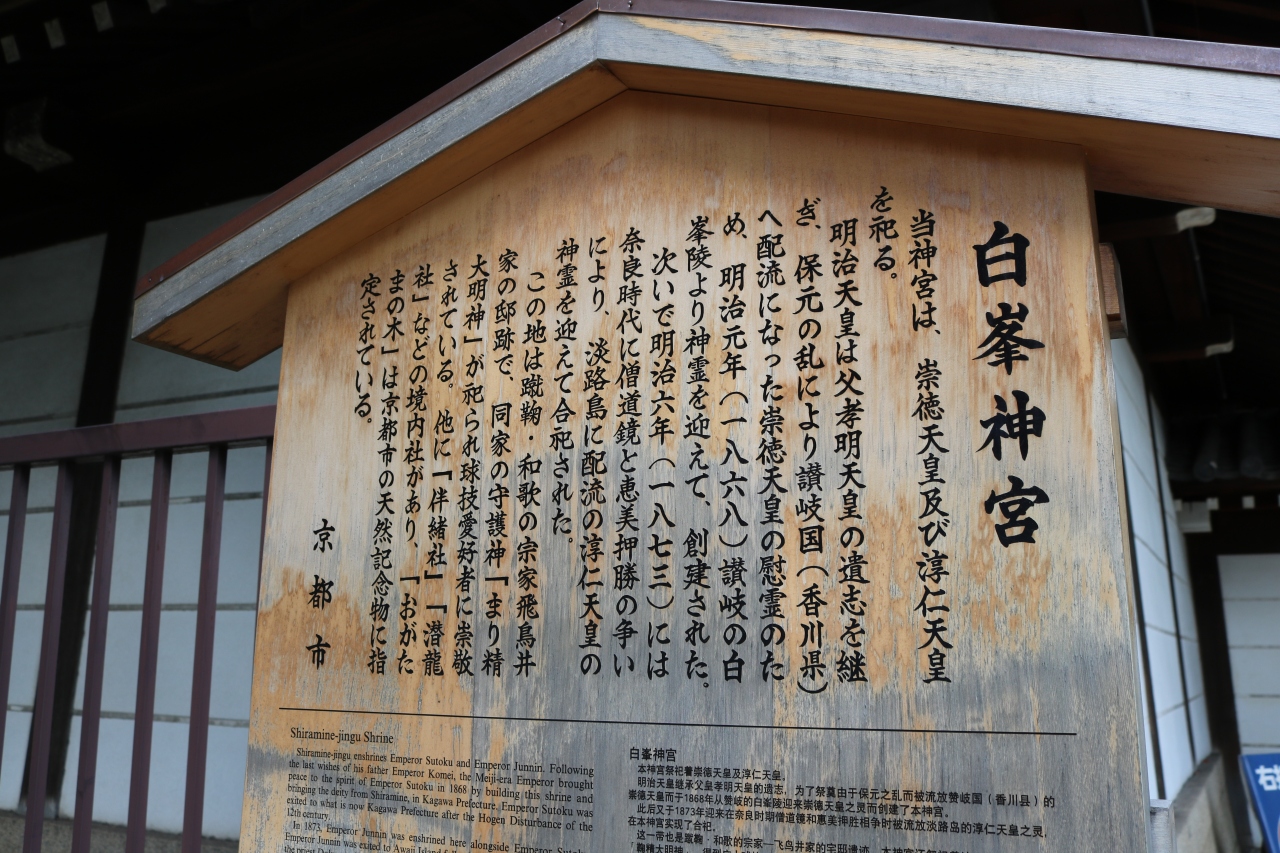 白峯神宮
当神宮は、崇徳天皇及び淳仁天皇
を祀る。
明治天皇は父孝明天皇の遺志を継
ぎ、保元の乱により讃岐国（香川県）
へ配流になった崇徳天皇の慰霊のた
め、明治元年（一八六八）讃岐の白
峯陵より神霊を迎えて、創建された。
次いで明治六年（一八七三）には
奈良時代に僧道鏡と恵美押勝の争い
により、淡路島に配流の淳仁天皇の
神霊を迎えて合祀された。
この地は蹴鞠・和歌の宗家飛鳥井
家の邸跡で、同家の守護神「まり精
大明神」が祀られ球技愛好者に崇敬
されている。他に「伴緒社」「潜龍
社」などの境内社があり、「おがた
まの木」は京都市の天然記念物に指
定されている。
京都市
Shiramine-jingu Shrine
Shiramine-jingu enshrines Emperor Sutoku and Emperor Junnin. Following
the last wishes of his father Emperor Komei, the Meiji-era Emperor brought
peace to the spirit of Emperor Sutoku in 1868 by building this shrine and
bringing the deity from Shiramine, in Kagawa Prefecture. Emperor Sutoku was
exited to what is now Kagawa Prefecture after the Hogen Disturbance of the
12th century.
In 1873, Emperor Junnin was enshrined here alongside Emperor
Emperor Junnin was exited to Awaji Island
白峯神宫
本神宫祭祀着崇德天皇及淳仁天皇。
明治天皇继承父皇孝明天皇的遗志，为了祭奠由于保元之乱而被流放赞岐国（香川县）的
崇德天皇而于1868年从赞岐的白峯陵迎来崇德天皇之灵而创建了本神宫。
此后又于1873年迎来在奈良时期僧道镜和惠美押胜相争时被流放淡路岛的淳仁天皇之灵，
在本神宫实现了合祀。
这一带也是蹴鞠・和歌的宗家—飞鸟井家的宅邸遗迹，